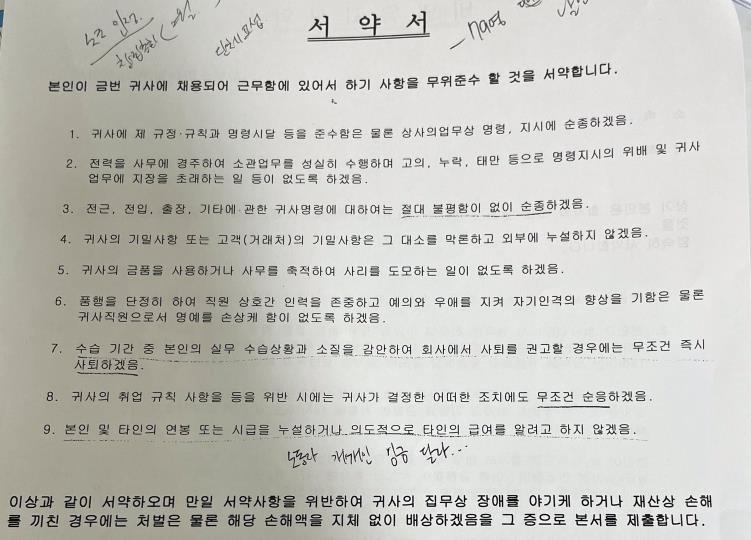 노조 인정.
단체교섭
서 약 서
본인이 금번 귀사에 채용되어 근무함에 있어서 하기 사항을 무위준수 할 것을 서약합니다.
1. 귀사에 제 규정·규칙과 명령시달 등을 준수함은 물론 상사의업무상 명령, 지시에 순종하겠음.
2. 전력을 사무에 경주하여 소관업무를 성실히 수행하며 고의, 누락, 태만 등으로 명령지시의 위배 및 귀사
업무에 지장을 초래하는 일 등이 없도록 하겠음.
3. 전근, 전입, 출장, 기타에 관한 귀사명령에 대하여는 절대 불평함이 없이 순종하겠음.
4. 귀사의 기밀사항 또는 고객(거래처)의 기밀사항은 그 대소를 막론하고 외부에 누설하지 않겠음.
5. 귀사의 금품을 사용하거나 사무를 축적하여 사리를 도모하는 일이 없도록 하겠음.
6. 품행을 단정히 하여 직원 상호간 인력을 존중하고 예의와 우애를 지켜 자기인격의 향상을 기함은 물론
귀사직원으로서 명예를 손상케 함이 없도록 하겠음.
7. 수습 기간 중 본인의 실무 수습상황과 소질을 감안하여 회사에서 사퇴를 권고할 경우에는 무조건 즉시
사퇴하겠음.
8. 귀사의 취업 규칙 사항을 등을 위반 시에는 귀사가 결정한 어떠한 조치에도 무조건 순응하겠음.
9. 본인 및 타인의 연봉 또는 시급을 누설하거나 의도적으로 타인의 급여를 알려고 하지 않겠음.
노동자 개개인 임금 달라...
이상과 같이 서약하오며 만일 서약사항을 위반하여 귀사의 집무상 장애를 야기케 하거나 재산상 손해
를 끼친 경우에는 처벌은 물론 해당 손해액을 지체 없이 배상하겠음을 그 증으로 본서를 제출합니다.